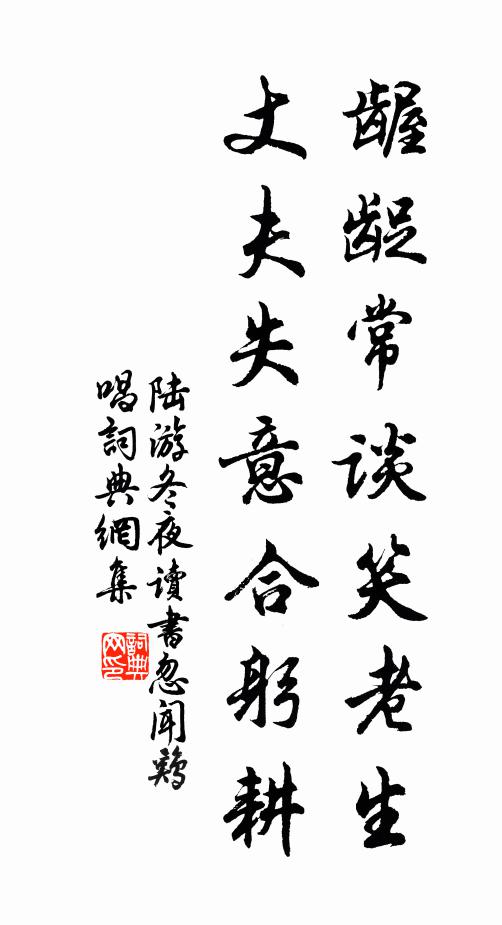 龌龊常谈笑老生
丈夫失意合躬耕
陆游冬夜读书忽闻鸡
唱詞典網集
詞典网印